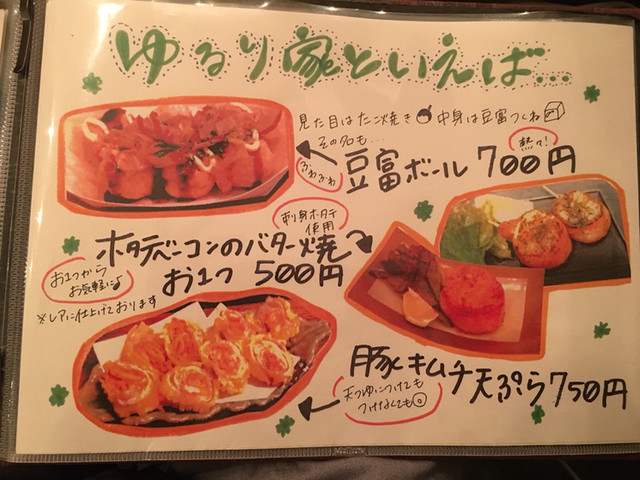 ゆるり家といえば...
見た目はたこ焼き 中身は豆富つくね
その名も...
熱々!
ふわふわ
豆富ボール 700円
刺身ホタテ
使用
ホタテベーコンのバター焼
お1つ 500円
お1つから
お気軽に♪
※レアに仕上げております
豚キムチ天ぷら750円
天つゆにつけても
つけなくても◎